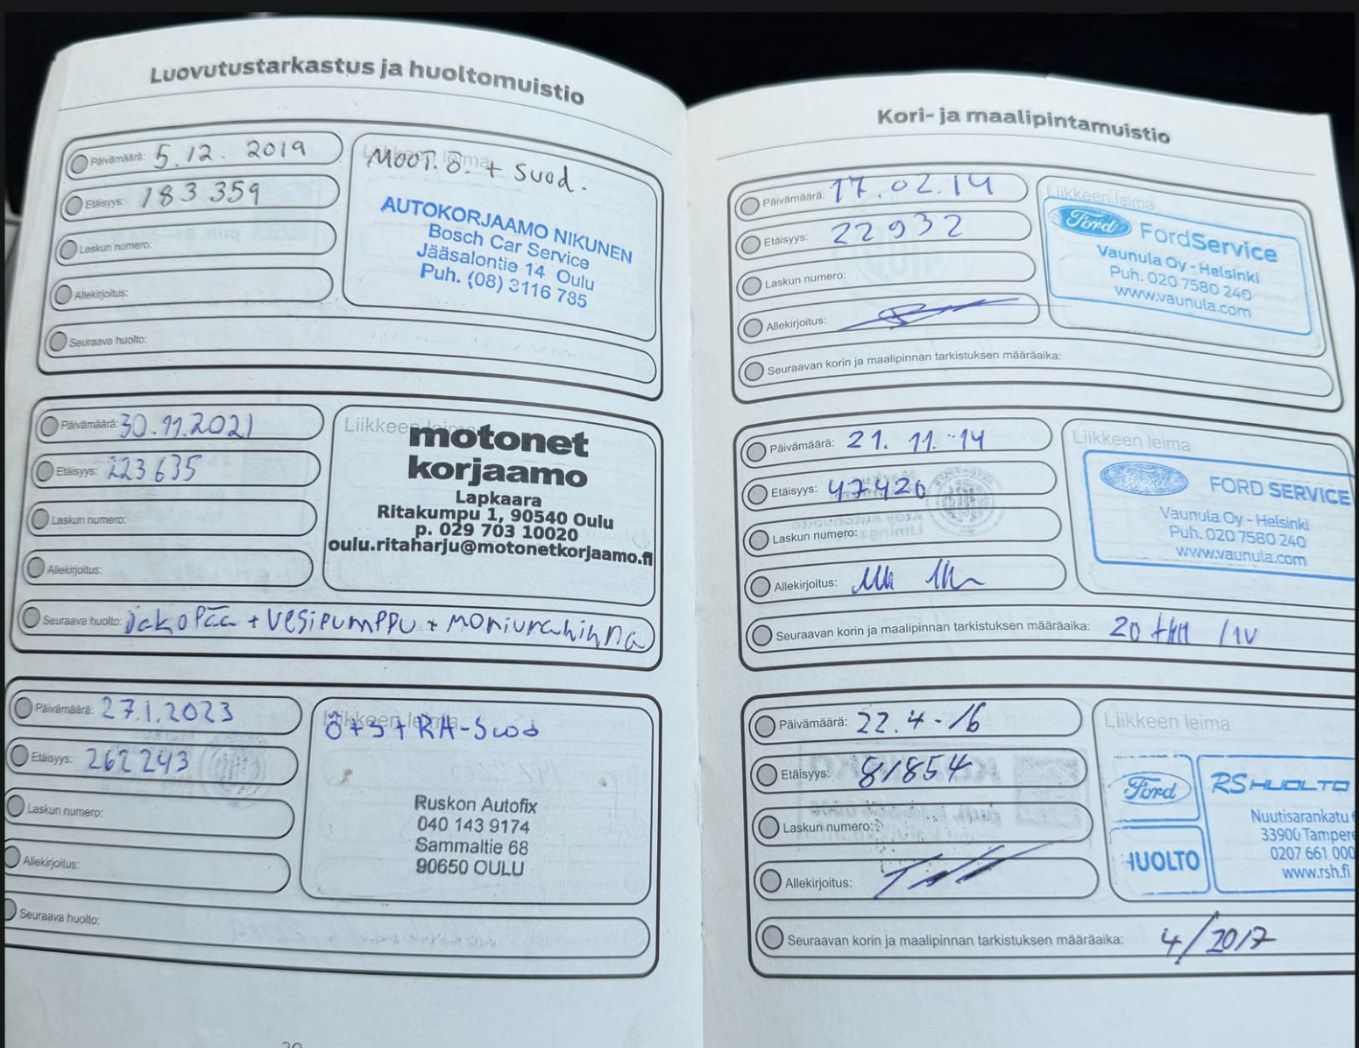 Luovutustarkastus ja huoltomuistio
Päivämäärä: 5.12. 2019
Etäisyys: 183 359
Laskun numero:
Allekirjoitus:
Seuraava huolto:
Liikkeen leima
MOOT. Ö. + Suod.
AUTOKORJAAMO NIKUNEN
Bosch Car Service
Jääsalontie 14 Oulu
Puh. (08) 3116 785
Päivämäärä: 30.11.2021
Etäisyys: 223635
Laskun numero:
Allekirjoitus:
Liikkeen leima
motonet
korjaamo
Lapkaara
Ritakumpu 1, 90540 Oulu
p. 029 703 10020
oulu.ritaharju@motonetkorjaamo.fi
Seuraava huolto: jakopää + vesipumppu + moniurahihna
Päivämäärä: 27.1.2023
Etäisyys: 262243
Laskun numero:
Allekirjoitus:
Seuraava huolto:
Liikkeen leima
Ö+S+RA-Suod
Ruskon Autofix
040 143 9174
Sammaltie 68
90650 OULU
Kori- ja maalipintamuistio
Päivämäärä: 17.02.14
Etäisyys: 22932
Laskun numero:
Allekirjoitus:
Liikkeen leima
Ford FordService
Vaunula Oy - Helsinki
Puh. 020 7580 240
www.vaunula.com
Seuraavan korin ja maalipinnan tarkistuksen määräaika:
Päivämäärä: 21. 11. -14
Etäisyys: 47420
Laskun numero:
Allekirjoitus:
Liikkeen leima
Ford FORD SERVICE
Vaunula Oy - Helsinki
Puh. 020 7580 240
www.vaunula.com
Seuraavan korin ja maalipinnan tarkistuksen määräaika: 20 tkm / 1v
Päivämäärä: 22.4-16
Etäisyys: 81854
Laskun numero:
Allekirjoitus:
Liikkeen leima
Ford
HUOLTO
RS HUOLTO
Nuutisarankatu
33900 Tampere
0207 661 000
www.rsh.fi
Seuraavan korin ja maalipinnan tarkistuksen määräaika: 4/2017